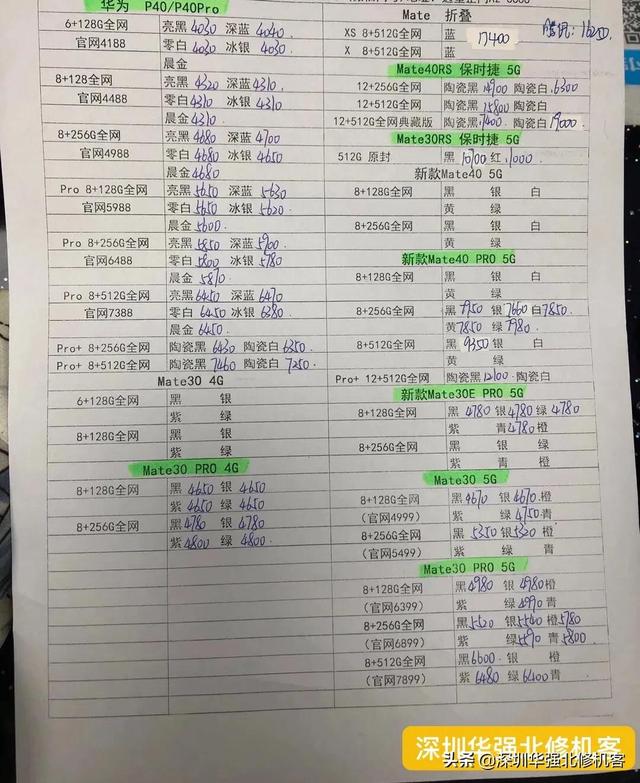 华为 P40/P40Pro
6+128G全网 亮黑 4030 深蓝 4040
官网4188 零白 4030 冰银 4030
晨金
8+128全网 亮黑 4320 深蓝 4310
官网4488 零白 4310 冰银 4310
晨金 4310
8+256G全网 亮黑 4680 深蓝 4700
官网4988 零白 4680 冰银 4650
晨金 4680
Pro 8+128G全网 亮黑 5650 深蓝 5630
官网5988 零白 5650 冰银 5620
晨金 5600
Pro 8+256G全网 亮黑 5850 深蓝 5900
官网6488 零白 5800 冰银 5780
晨金 5870
Pro 8+512G全网 亮黑 6450 深蓝 6470
官网7388 零白 6450 冰银 6380
晨金 6450
Pro+ 8+256G全网 陶瓷黑 6430 陶瓷白 6350
Pro+ 8+512G全网 陶瓷黑 7460 陶瓷白 7250
Mate30 4G
6+128G全网 黑 银
紫 绿
8+128G全网 黑 银
紫 绿
Mate30 PRO 4G
8+128G全网 黑 4650 银 4650
紫 4650 绿 4650
8+256G全网 黑 4780 银 4780
紫 4800 绿 4800
Mate 折叠
XS 8+512G全网 蓝 17400
X 8+512G全网 蓝
Mate40RS 保时捷 5G
12+256G全网 陶瓷黑 陶瓷白
12+512G全网 陶瓷黑 15800 陶瓷白
12+512G全网典藏版 陶瓷黑 陶瓷白 19000
Mate30RS 保时捷 5G
512G 原封 黑 10700 红
新款Mate40 5G
8+128G全网 黑 银 白
黄 绿
8+256G全网 黑 银 白
黄 绿
新款Mate40 PRO 5G
8+128G全网 黑 银 白
黄 绿
8+256G全网 黑 7950 银 7660 白 7850
黄 7850 绿 7980
8+512G全网 黑 9350 银 白
黄 绿
Pro+ 12+512G全网 陶瓷黑 12100 陶瓷白
新款Mate30E PRO 5G
8+128G全网 黑 4780 银 4780 绿 4780
紫 青 4780 橙
8+256G全网 黑 银 绿
紫 青 橙
Mate30 5G
8+128G全网 黑 4670 银 4670 橙
(官网4999) 紫 绿 4750 青
8+256G全网 黑 5350 银 5320 橙
(官网5499) 紫 绿 青
Mate30 PRO 5G
8+128G全网 黑 4980 银 4980 橙
(官网6399) 紫 绿 4990 青
8+256G全网 黑 5520 银 5540 橙 5780
(官网6899) 紫 绿 5590 青 5800
8+512G全网 黑 6600 银 橙
(官网7899) 紫 6480 绿 6400 青
深圳华强北修机客
头条 @深圳华强北修机客